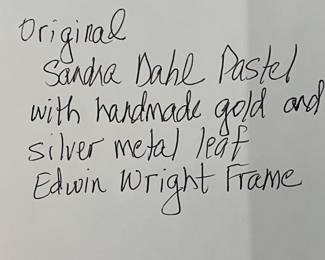 Original
Sandra Dahl Pastel
with handmade gold and
silver metal leaf
Edwin Wright Frame